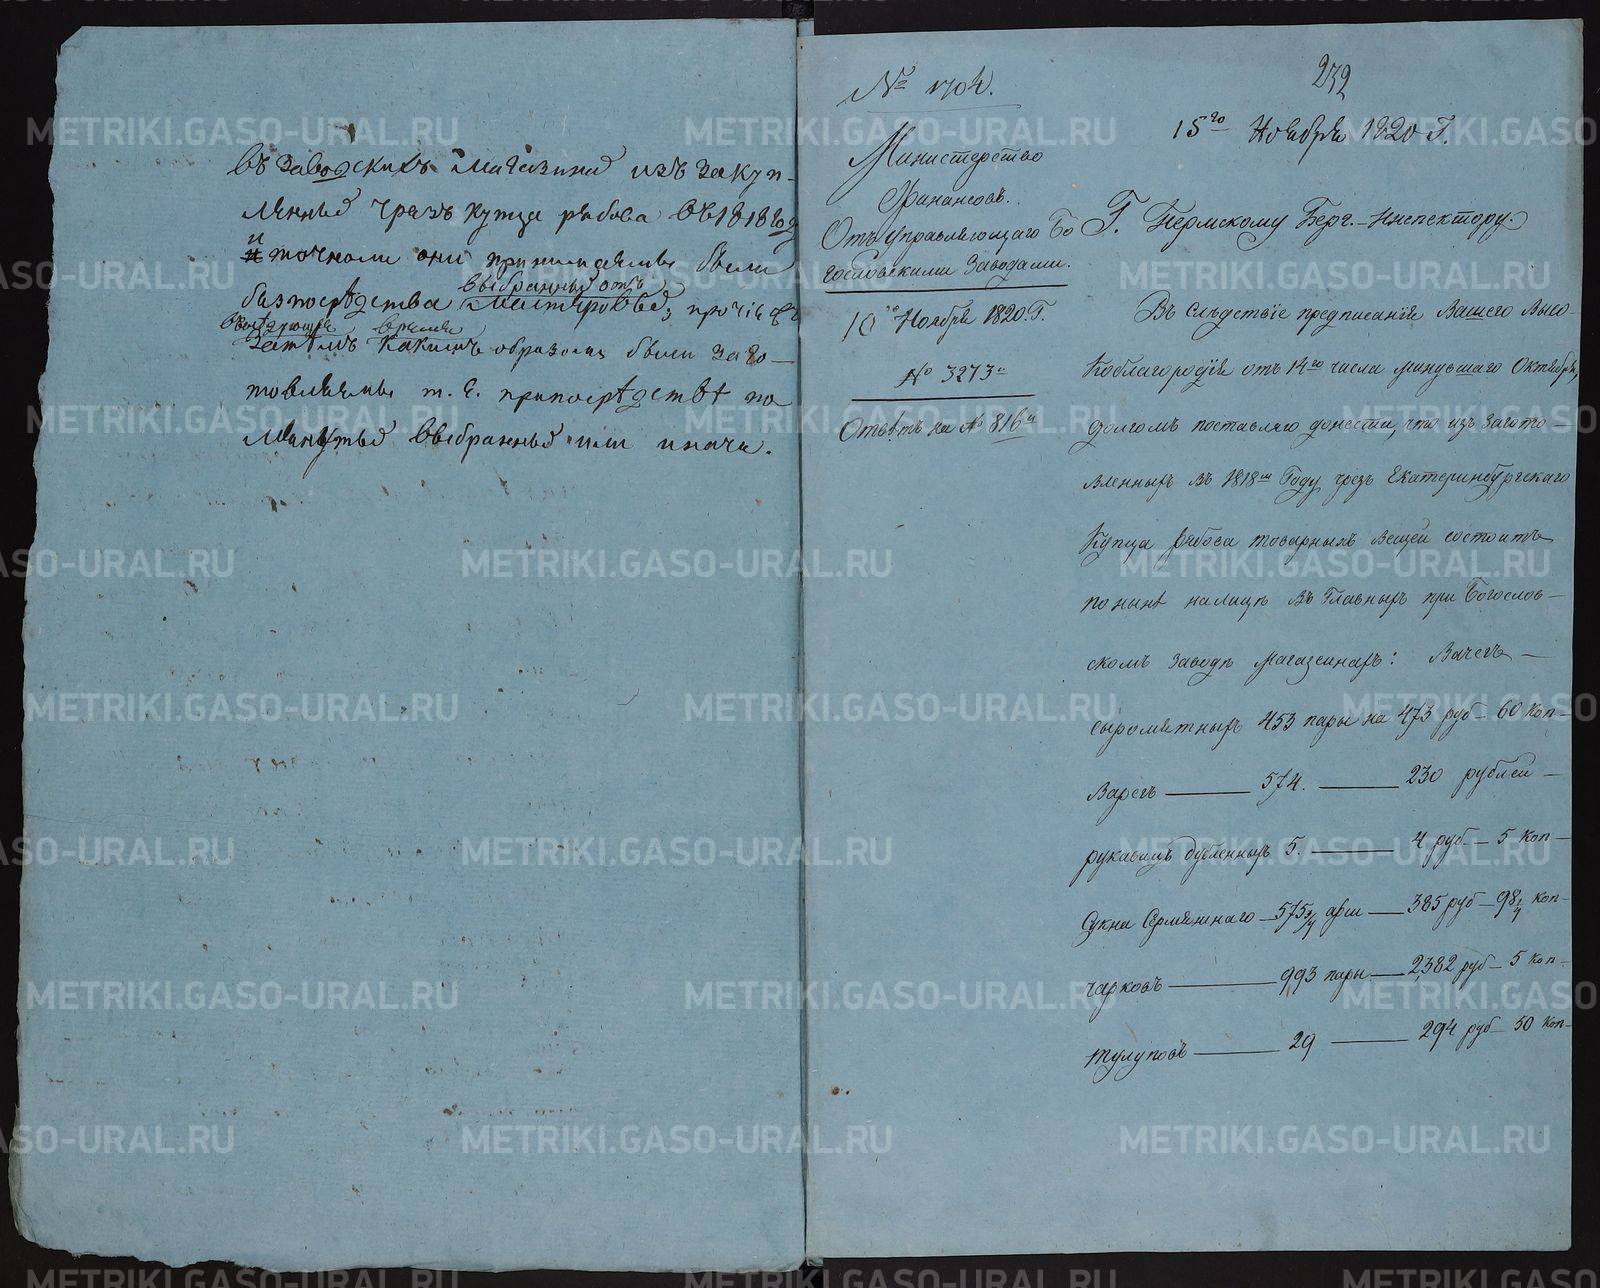 въ заводскихъ магазинахъ изъ закуп-
ленныхъ чрезъ купца рябова въ 1818 году
и точно ли они принимаемы были
безпосредства выбранныхъ отъ мастеровыхъ; прочiе
въ последующее затемъ время какимъ образомъ были заго-
товляемы т. е. припосредстве по
мянутыхъ выбранныхъ или иначе.
№ 1704.
Министерство
Финансовъ.
Отъ Управляющаго Бо
гословскими Заводами.
10 Ноября 1820. Г.
№ 3273
Ответъ на № 816
232
15го Ноября 1820 Г.
Г. Пермскому Берг-Инспектору.
Въ Следствiе предписанiя Вашего Высо-
коблагородiя отъ 14го числа минувшаго Октября,
долгомъ поставляю донести, что изъ загото-
вленныхъ въ 1818м Году чрезъ Екатеринбургскаго
Купца Рябова товарныхъ вещей состоитъ
поныне налицо въ Главныхъ при Богослов-
скомъ заводе магазейнахъ: Вачегъ —
сыромятныхъ 453 пары на 473 руб — 60 коп —
Варегъ — 574. — 230 рублей —
рукавицъ дубленныхъ 5. — 4 руб — 5 коп —
Сукна Сермяжнаго — 575 3/4 арш — 385 руб — 98 1/4 коп -
чарковъ — 993 пары — 2382 руб — 5 коп -
тулуповъ — 29 — 294 руб — 50 коп -
METRIKI.GASO-URAL.RU